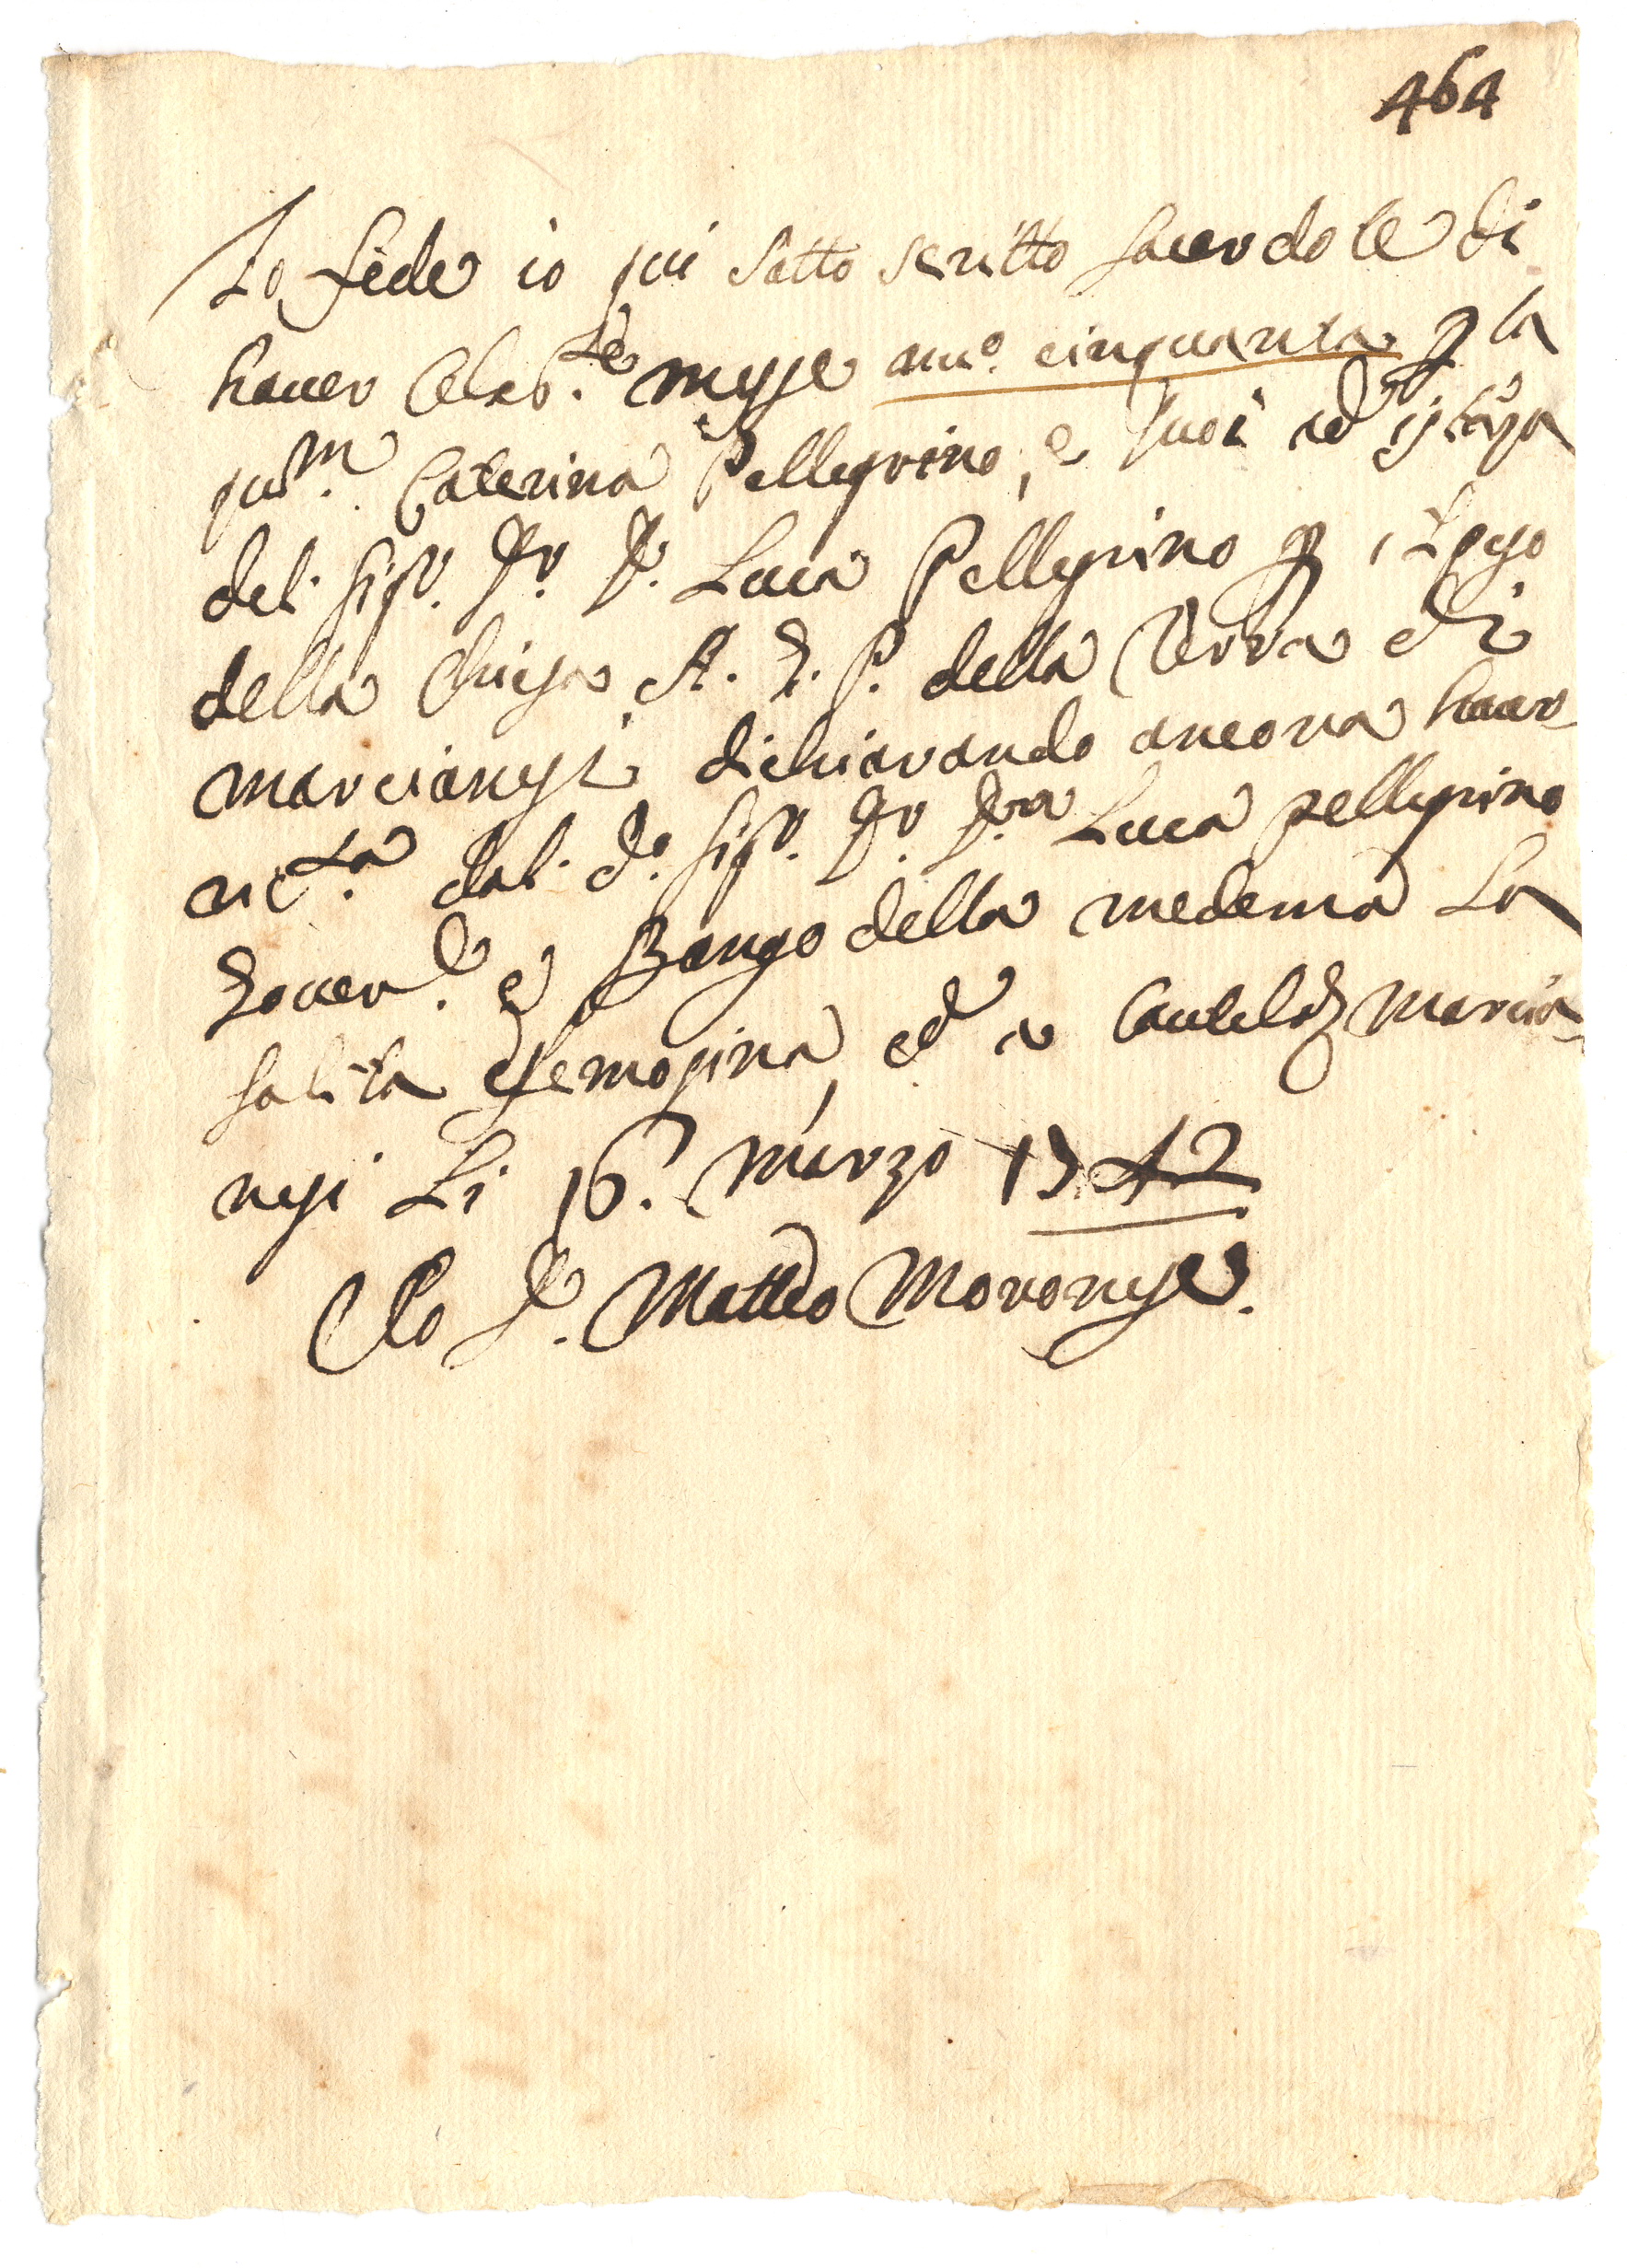 464
Fo fede io qui sotto scritto sacerdote di
haver Celeb.te messe nu.o cinquanta p la
qu.m Caterina Pellegrino, e suoi ad istāza
del Sig.r D.r D. Luca Pellegrino p
della Chiesa A. G. P. della Terra di
Marcianesi, dichiarando ancora haver
ric.ta dal d.o Sig.r D.r D. Luca Pellegrino
Gover.e della medema La
solita elemosina, ed a cautela Marcia-
nesi Li 16. Marzo 1742
Io D. Matteo Moronese.